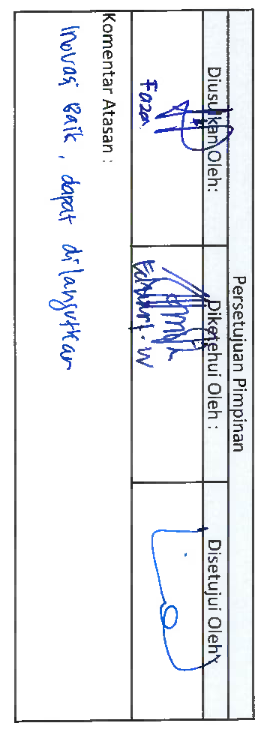 Persetujuan Pimpinan
Diusulkan Oleh:
Diketehui Oleh :
Disetujui Oleh:
Faza
Edward. W
Komentar Atasan :
Inovasi Baik, dapat dilanjutkan